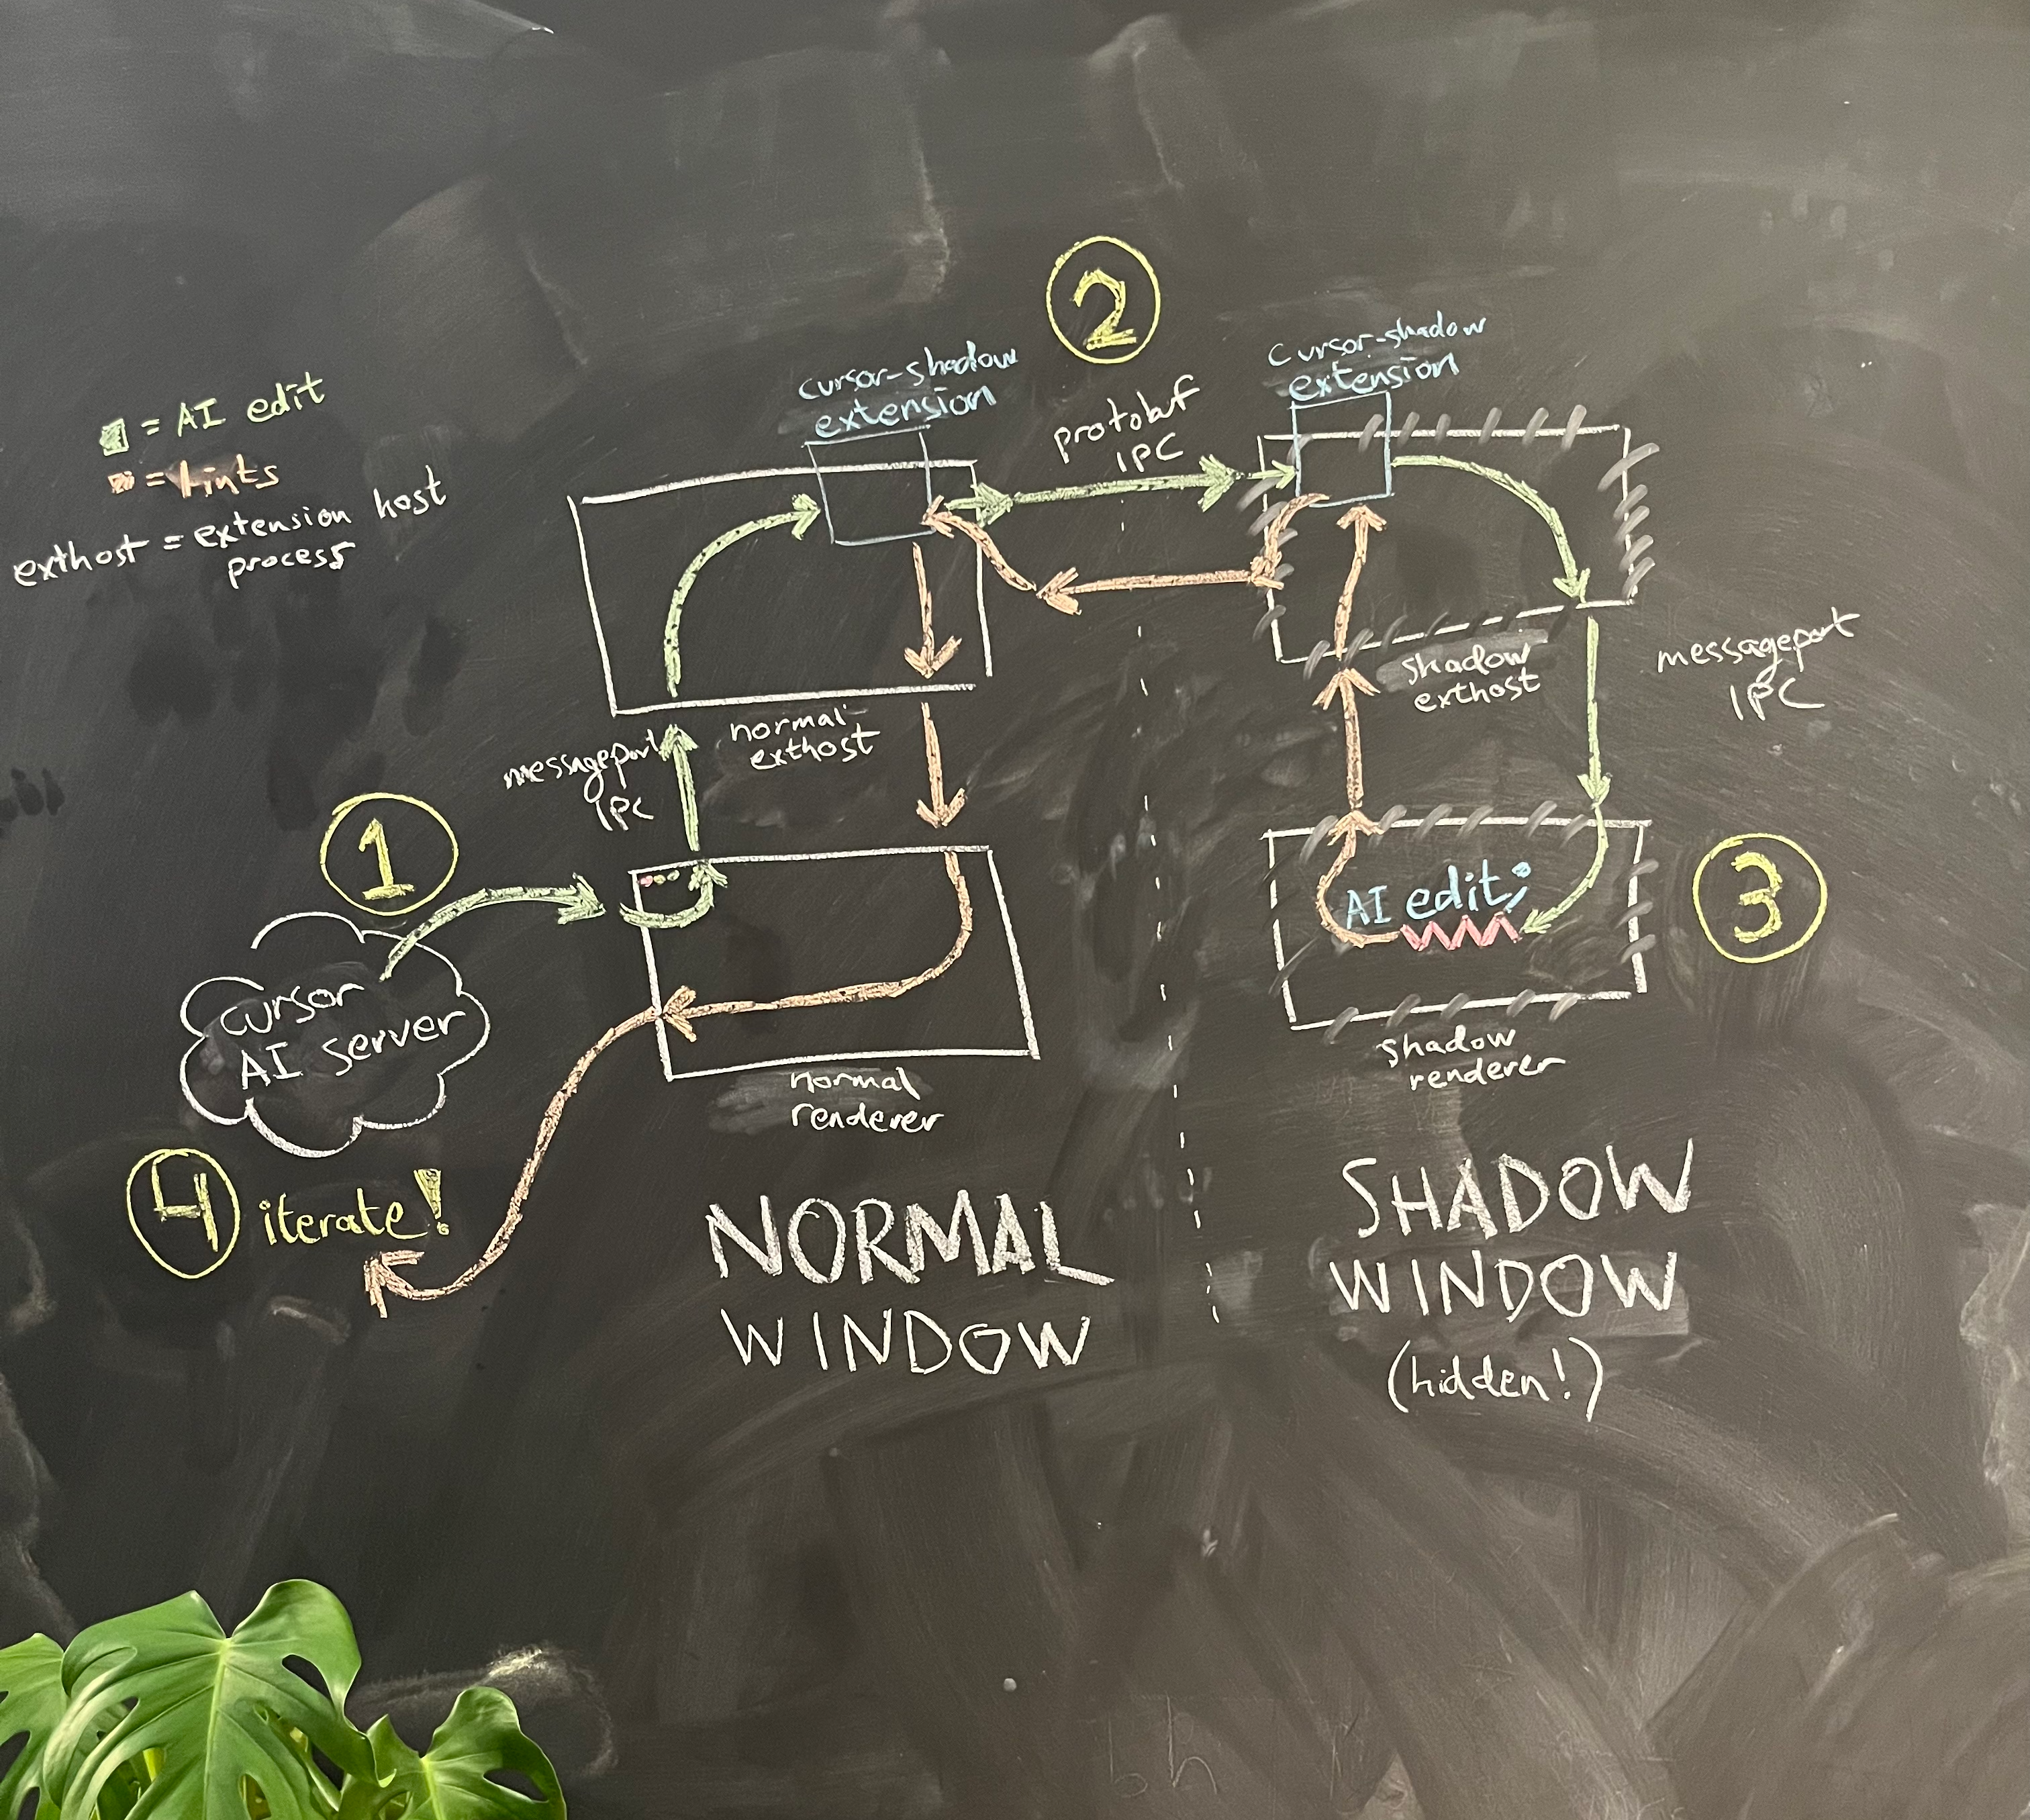 2
cursor-shadow
extension
cursor-shadow
extension
protobuf
IPC
= AI edit
= lints
exthost = extension host
process
messageport
IPC
normal
exthost
shadow
exthost
messageport
IPC
1
cursor
AI server
AI edit;
3
normal
renderer
shadow
renderer
4 iterate!
NORMAL
WINDOW
SHADOW
WINDOW
(hidden!)